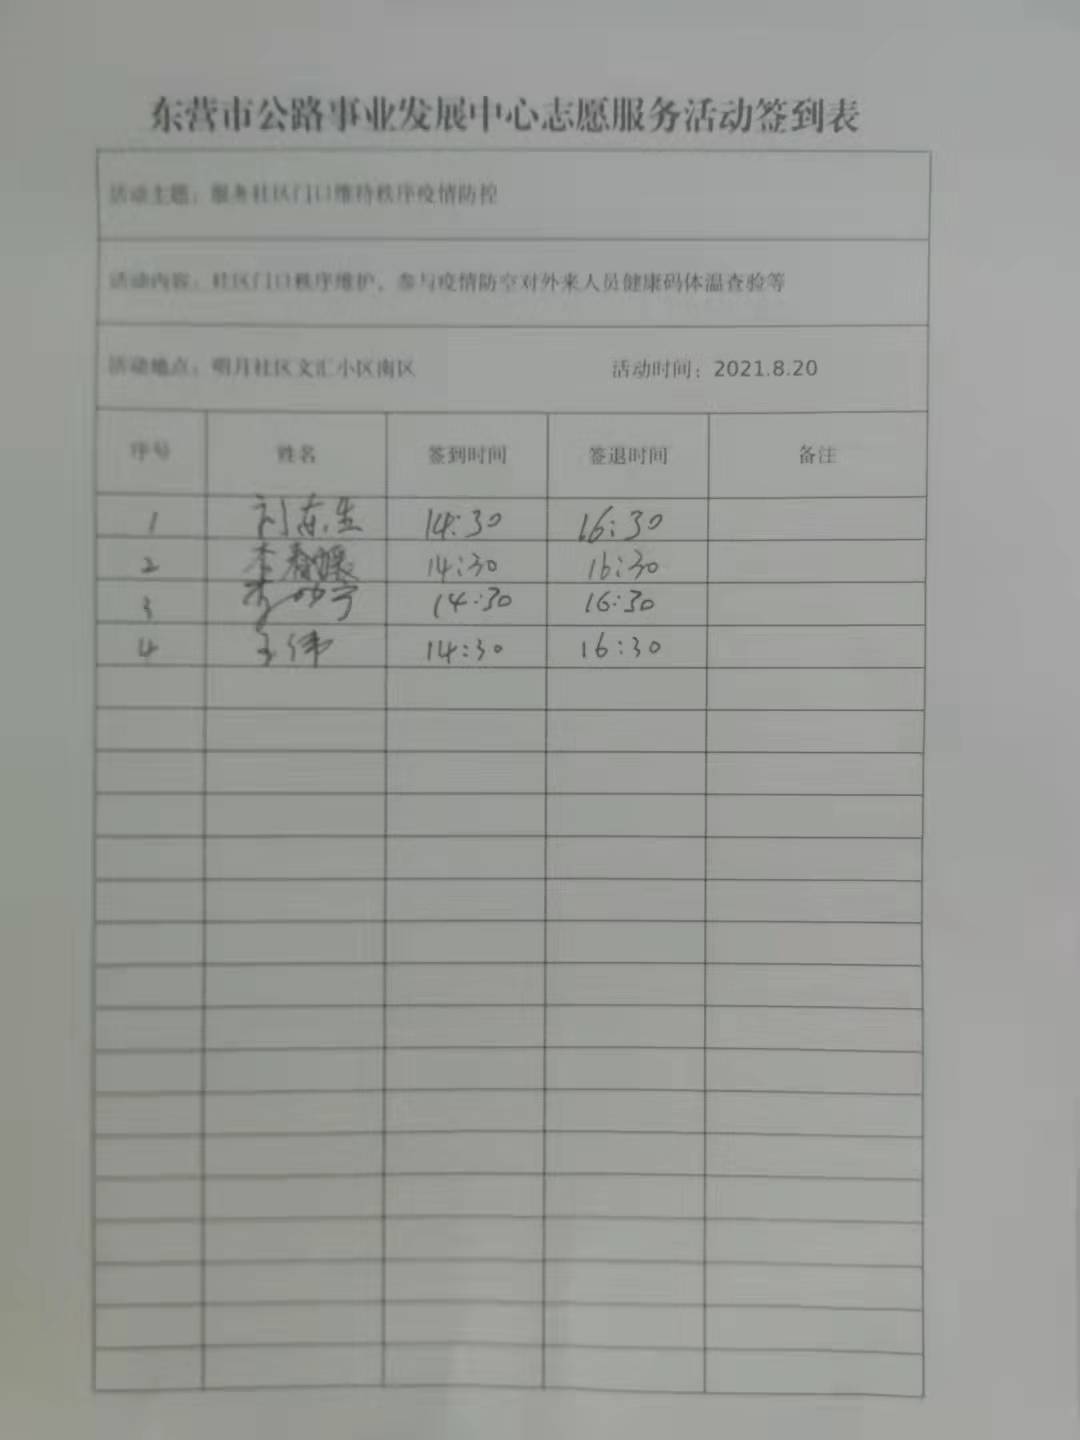 东营市公路事业发展中心志愿服务活动签到表
活动主题：服务社区门口维持秩序疫情防控
活动内容：社区门口秩序维护，参与疫情防空对外来人员健康码体温查验等
活动地点：明月社区文汇小区南区 活动时间：2021.8.20
序号 姓名 签到时间 签退时间 备注
1 刘东生 14:30 16:30
2 李春 14:30 16:30
3 14:30 16:30
4 王伟 14:30 16:30